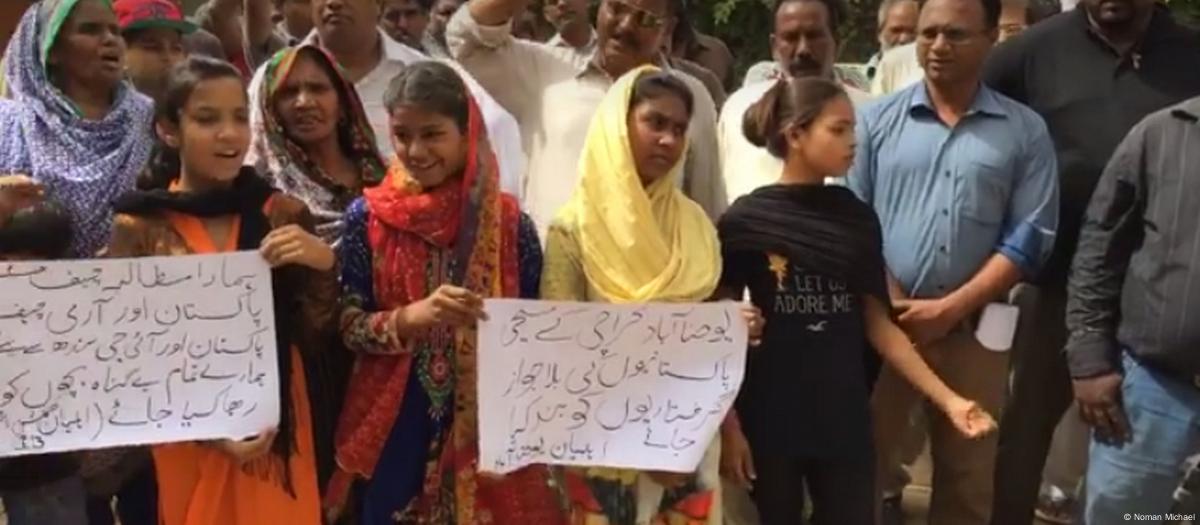 ہمارا مطالبہ چیف
پاکستان اور آرمی چیف
پاکستان اور آئی جی سندھ سے ہے
ہمارے تمام بے گناہ بچوں کو
رہا کیا جائے (اہلیان
13
یوحنا آباد کراچی کے مسیحی
پاکستانیوں کی بلا جواز
گرفتاریوں کو بند کیا
جائے
اہلیان
LET US
ADORE ME
© Noman Michael